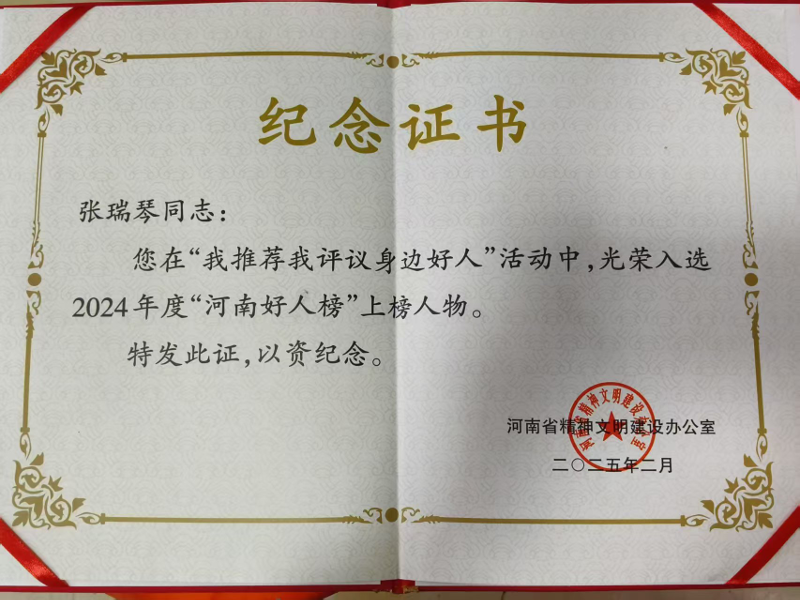 纪念证书
张瑞琴同志：
您在“我推荐我评议身边好人”活动中，光荣入选
2024年度“河南好人榜”上榜人物。
特发此证，以资纪念。
河南省精神文明建设办公室
二〇二五年二月
河南省精神文明建设办公室